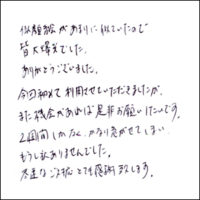 似顔絵があまりに似ていたので
皆大爆笑でした。
ありがとうございました。
今回初めて利用させていただきましたが、
また機会があれば是非お願いしたいです。
2週間しかなく、かなり急がせてしまい
もうし訳ありませんでした。
迅速なご対応とても感謝致します。